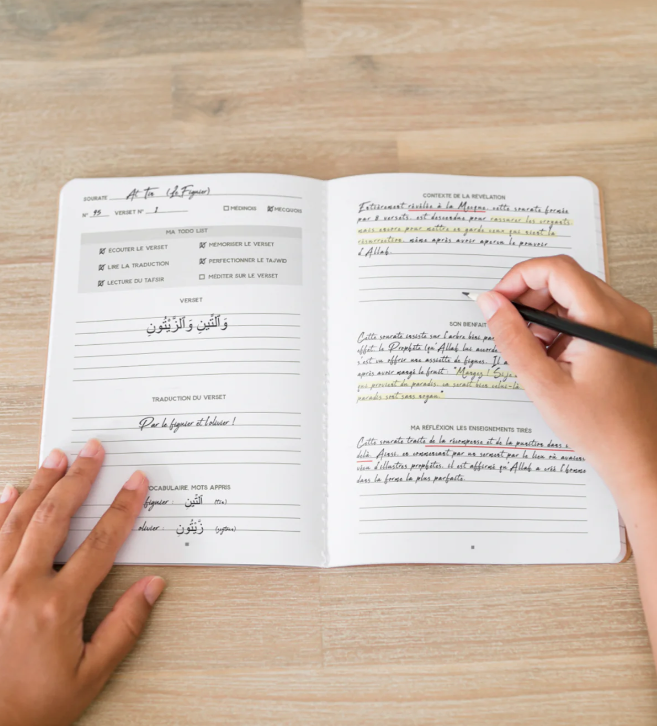 SOURATE At Tin (le Figuier)
N° 95 VERSET N° 1 MÉDINOIS MECQUOIS
MA TODO LIST
ÉCOUTER LE VERSET MÉMORISER LE VERSET
LIRE LA TRADUCTION PERFECTIONNER LE TAJWID
LECTURE DU TAFSIR MÉDITER SUR LE VERSET
VERSET
وَٱلتِّينِ وَٱلزَّيْتُونِ
TRADUCTION DU VERSET
Par le figuier et l'olivier !
VOCABULAIRE, MOTS APPRIS
figuier : ٱلتِّينِ (tin)
olivier : زَّيْتُونِ
CONTEXTE DE LA RÉVÉLATION
Entièrement révélée à la Mecque, cette sourate formée
par 8 versets, est descendue pour rassurer les croyants
mais encore pour mettre en garde ceux qui nient la
résurrection même après avoir aperçu le pouvoir
d'Allah.
SON BIENFAIT
Cette sourate insiste sur l'arbre béni par
effet, le Prophète (qu'Allah lui accorde
s'est vu offrir une assiette de figues. Il a
après avoir mangé le fruit : "Mangez ! Si je
que provenait du paradis, ce serait bien celui-là
paradis sont sans noyau."
MA RÉFLEXION, LES ENSEIGNEMENTS TIRÉS
Cette sourate traite de la récompense et de la punition dans
delà. Ainsi, en commençant par un serment par le lieu où avaient
vécu d'illustres prophètes, il est affirmé qu'Allah a créé l'homme
dans la forme la plus parfaite.